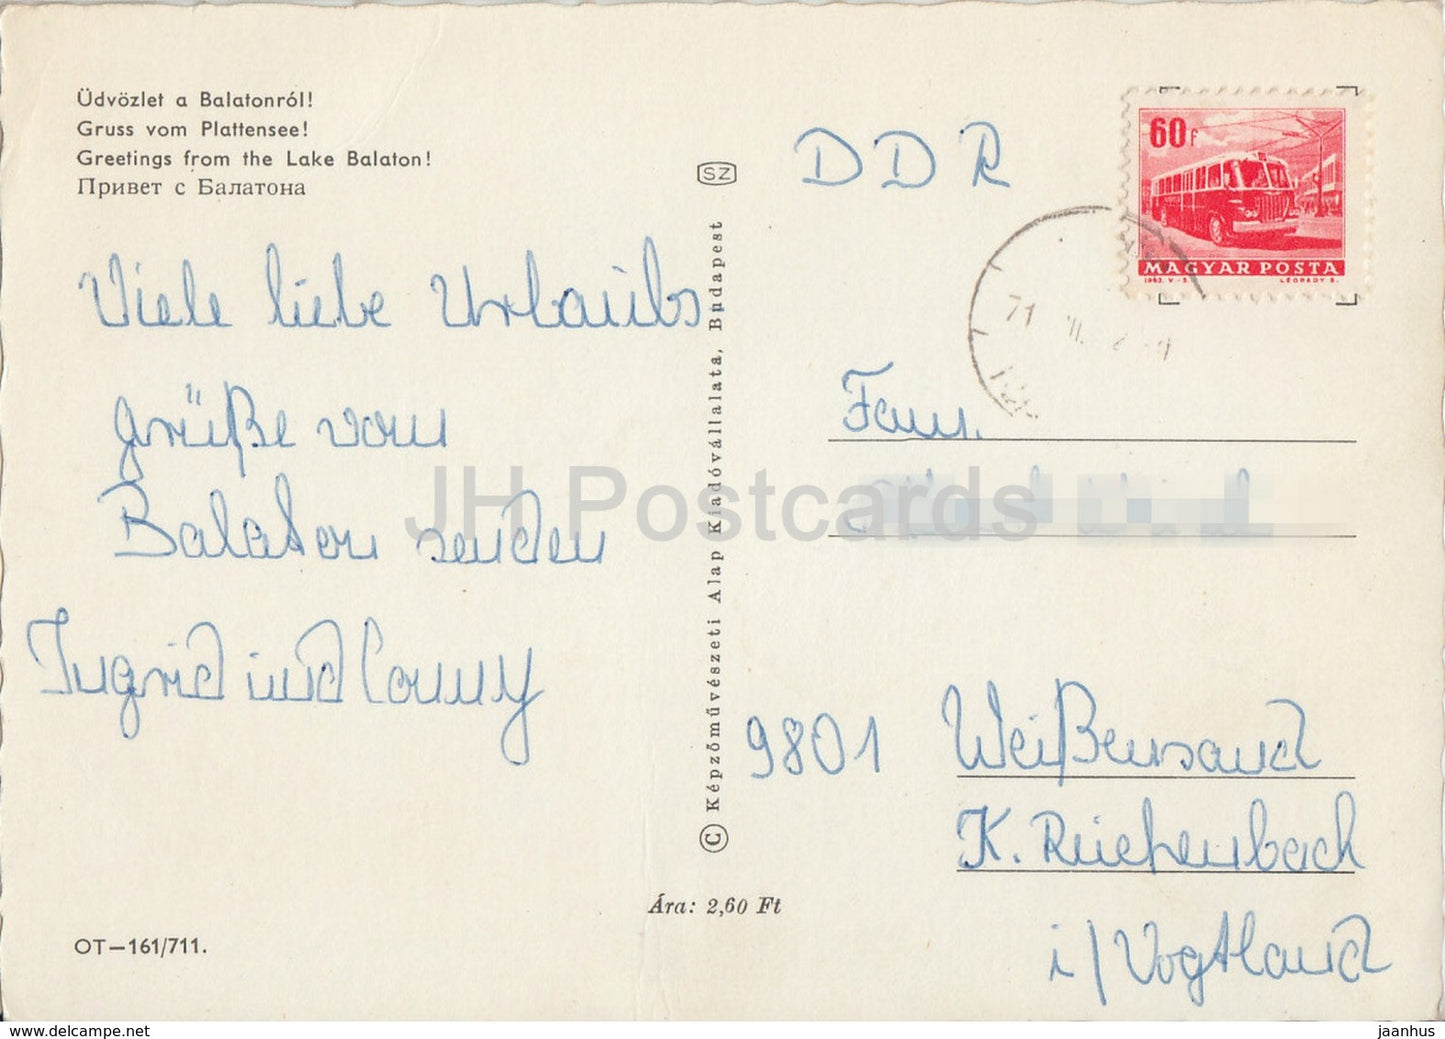 Üdvözlet a Balatonról!
Gruss vom Plattensee!
Greetings from the Lake Balaton!
Привет с Балатона
Viele liebe Urlaubs
grüße vom
Balaton senden
Ingrid und Conny
OT–161/711.
SZ
© Képzőművészeti Alap Kiadóvállalata, Budapest
Ára: 2,60 Ft
DDR
60f
MAGYAR POSTA
1963. V-S. LÉGRÁDY S.
71
Fam.
9801 Weißensand
K. Reichenbach
i/Vogtland
JH Postcards
www.delcampe.net
jaanhus